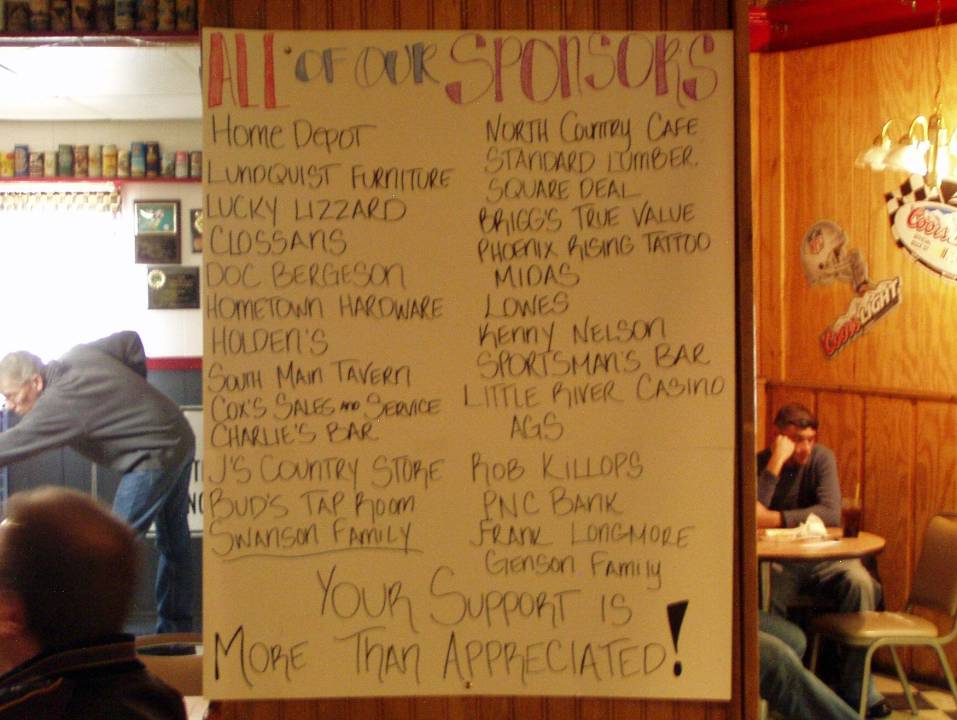 ALL OF OUR SPONSORS
HOME DEPOT
LUNDQUIST FURNITURE
LUCKY LIZZARD
CLOSSANS
DOC BERGESON
HOMETOWN HARDWARE
HOLDEN'S
SOUTH MAIN TAVERN
COX'S SALES AND SERVICE
CHARLIE'S BAR
J'S COUNTRY STORE
BUD'S TAP ROOM
SWANSON FAMILY
NORTH COUNTRY CAFE
STANDARD LUMBER
SQUARE DEAL
BRIGG'S TRUE VALUE
PHOENIX RISING TATTOO
MIDAS
LOWES
KENNY NELSON
SPORTSMAN'S BAR
LITTLE RIVER CASINO
AGS
ROB KILLOPS
PNC BANK
FRANK LONGMORE
GENSON FAMILY
YOUR SUPPORT IS
MORE THAN APPRECIATED!
Coors
NFL
Coors LIGHT